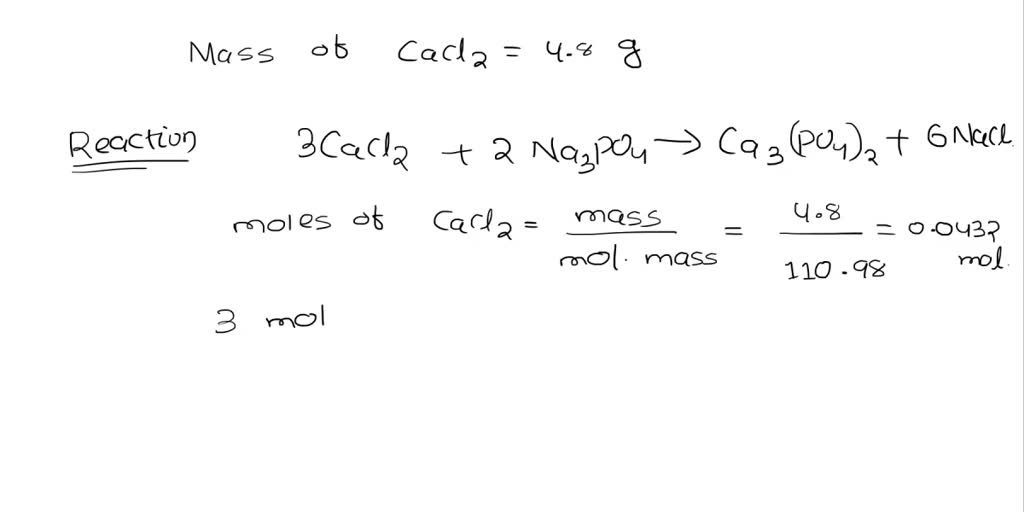 Mass of CaCl2 = 4.8 g
Reaction 3CaCl2 + 2 Na3PO4 → Ca3(PO4)2 + 6NaCl
moles of CaCl2 = mass / mol. mass = 4.8 / 110.98 = 0.0432 mol.
3 mol